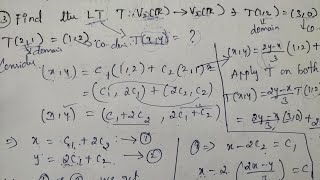 ③ Find the LT T: V₂(R) → V₂(R) ∋ T(1,2) = (3,0)
T(2,1) = (1,2)
domain
Co-do
T(x,y) = ?
domain
Co
Consider
(x,y) = C₁(1,2) + C₂(2,1)
= (C₁, 2C₁) + (2C₂, C₂)
(x,y) = (C₁+2C₂, 2C₁+C₂)
⇒ x = C₁+2C₂ → ①
y = 2C₁+C₂ → ②
(x,y) = 2y-x/3 (1,2) +
Apply T on both
T(x,y) = 2y-x/3 T(1,2)
= 2y-x/3 (3,0) + 2
① ⇒ x - 2C₂ = C₁
x - 2(2x-y/3) = C